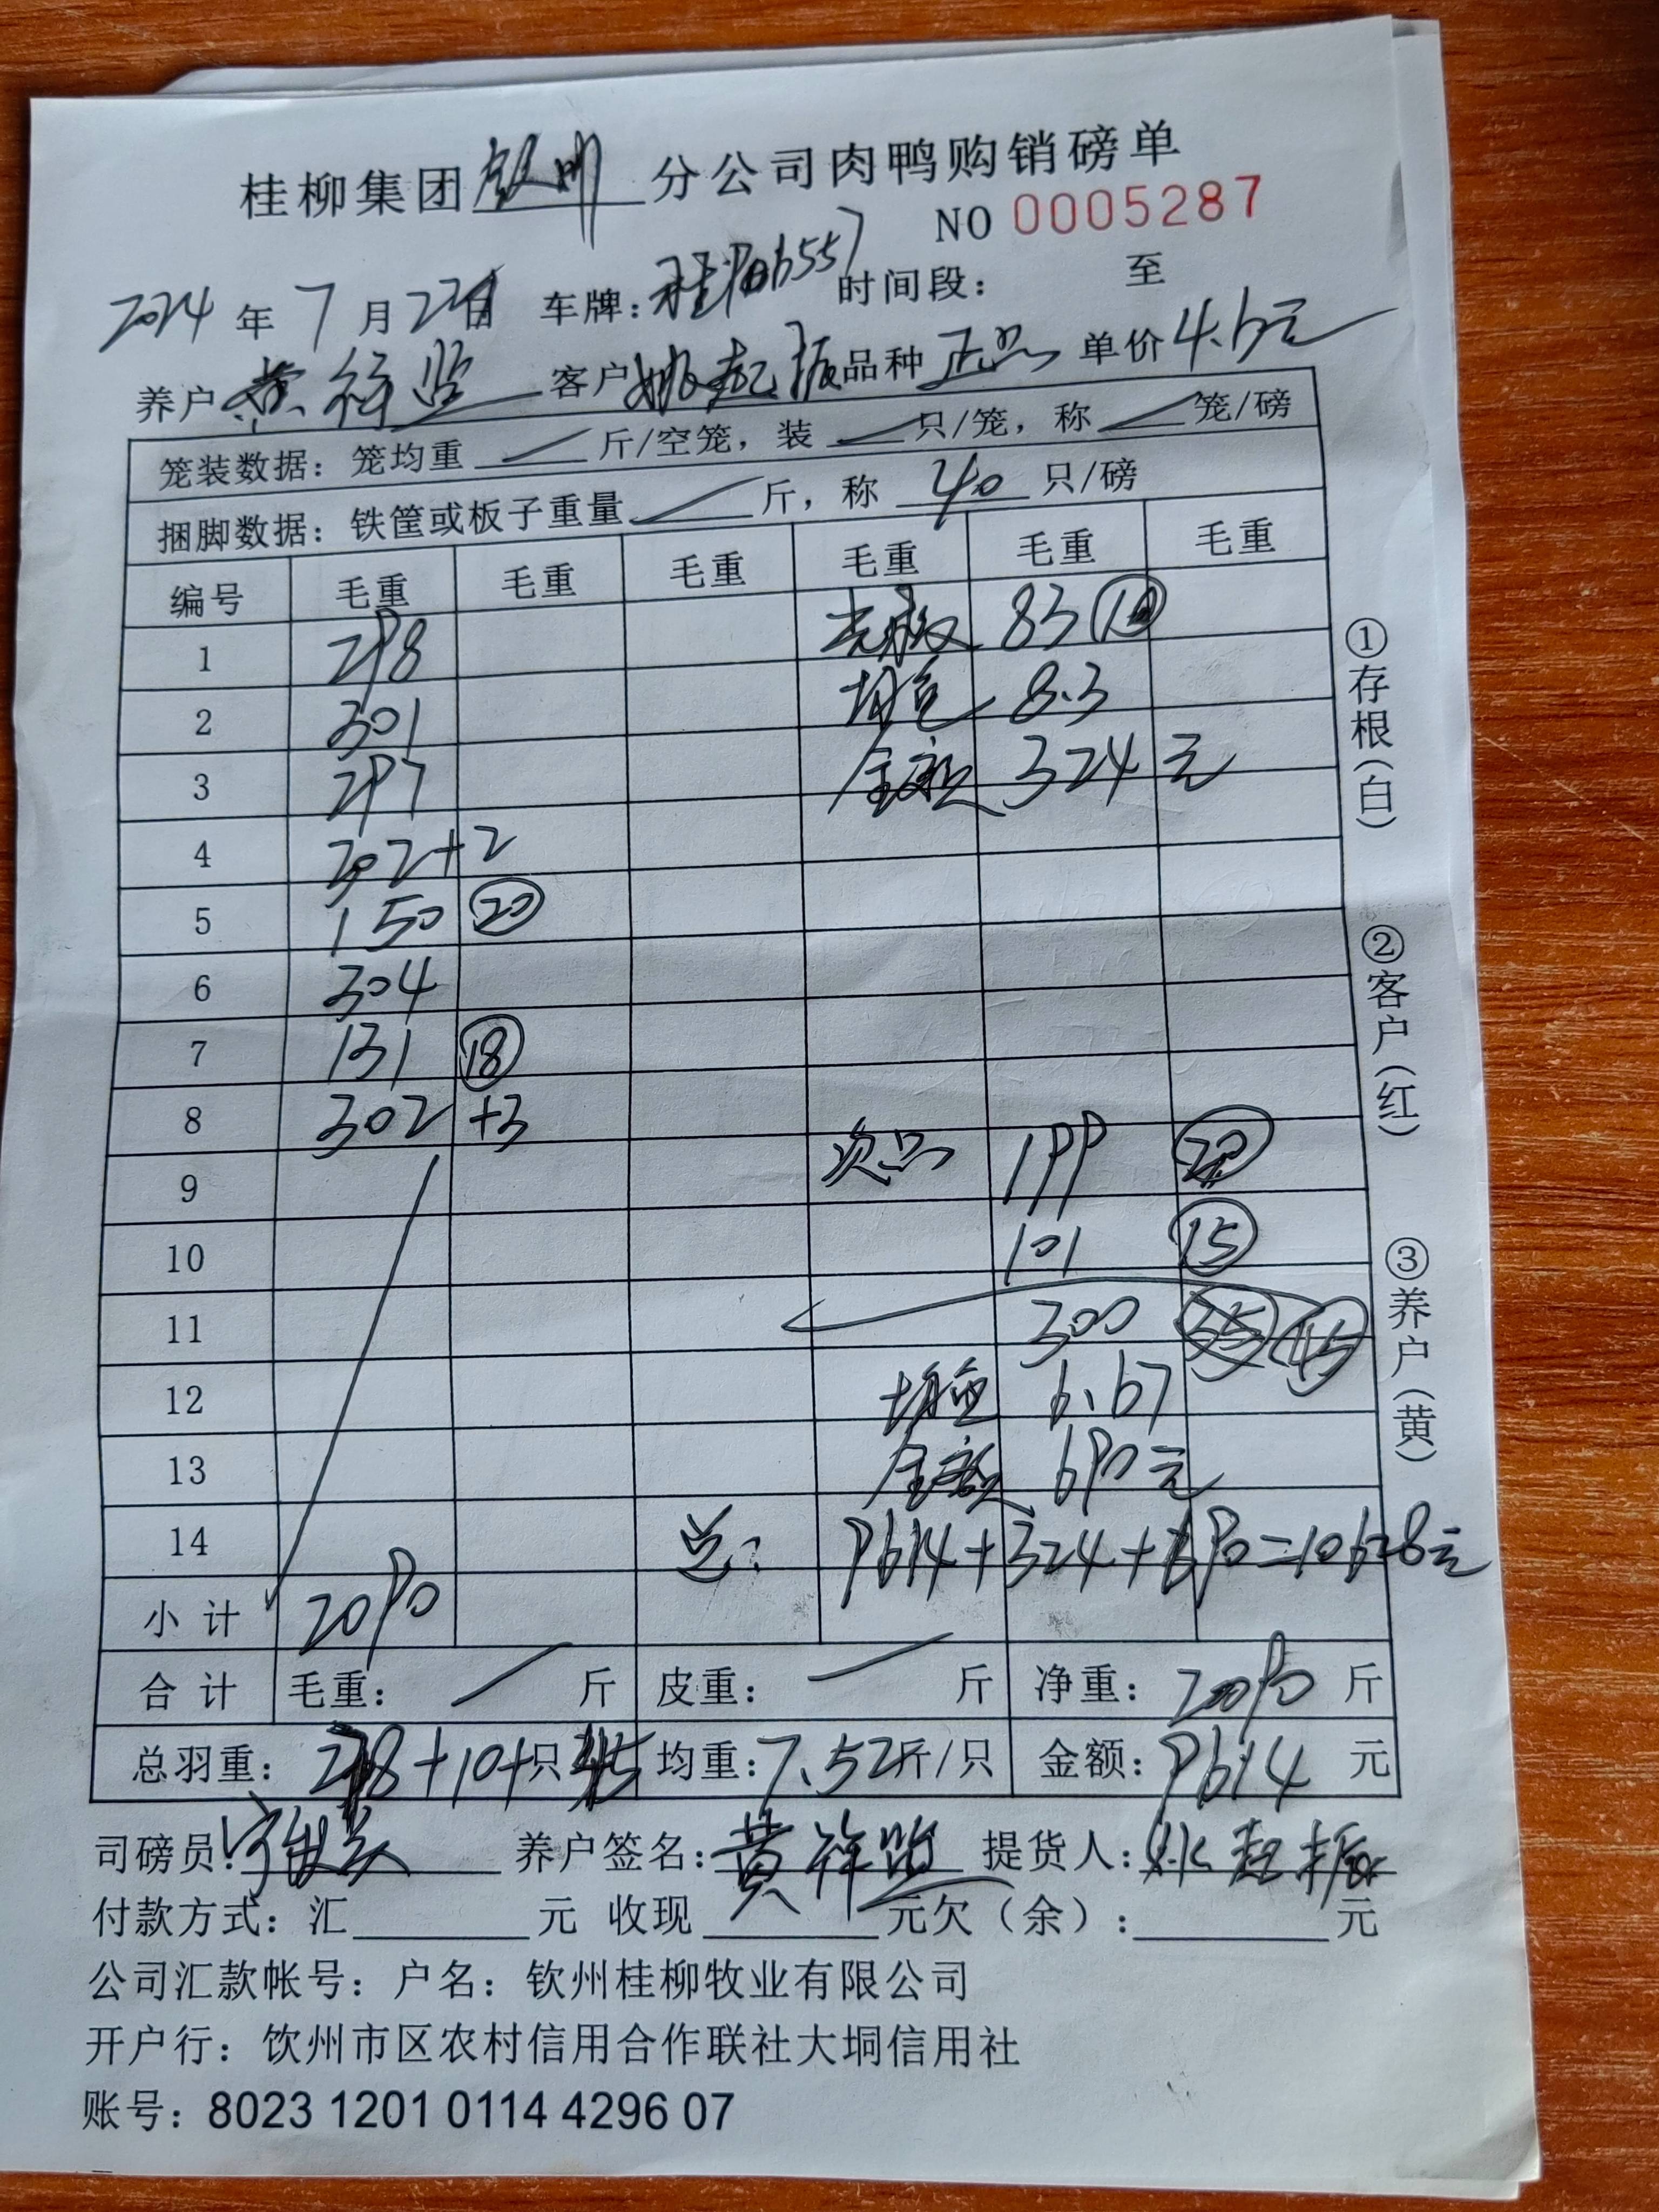 桂柳集团钦州分公司肉鸭购销磅单
NO 0005287
2024年7月22日 车牌：桂P06557 时间段： 至
养户 黄祥监 客户 姚起振 品种 正品 单价 4.6元
笼装数据：笼均重 斤/空笼，装 只/笼，称 笼/磅
捆脚数据：铁筐或板子重量 斤，称 40 只/磅
编号 毛重 毛重 毛重 毛重 毛重 毛重
1 298 83 10
2 301 均重 8.3
3 297 金额 324元
4 302+2
5 150 20
6 304
7 131 18
8 302 +3
9 次品 199
10 101 15
11 300 35 45
12 均重 6.67
13 金额 690元
14 总：9614+324+690=10628元
小计 2090
合计 毛重： 斤 皮重： 斤 净重：2090 斤
总羽重：278+10+只45 均重：7.52斤/只 金额：9614 元
司磅员： 养户签名：黄祥监 提货人：姚起振
付款方式：汇 元 收现 元欠（余）： 元
公司汇款帐号：户名：钦州桂柳牧业有限公司
开户行：饮州市区农村信用合作联社大垌信用社
账号：8023 1201 0114 4296 07
①存根（白）
②客户（红）
③养户（黄）